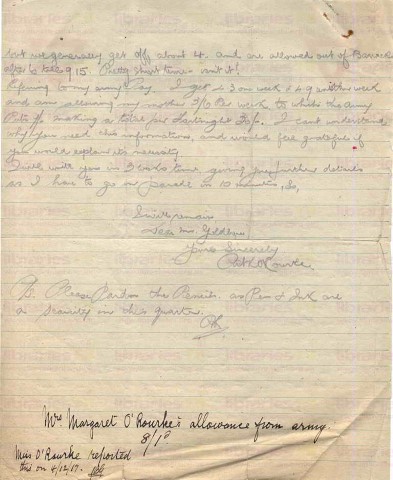 but we generally get off about 4. and are allowed out of Barracks
after 6 till 9.15. Pretty short time – isn't it!
Refering to my army Pay. I get 4/3 one week & 4/9 another week
and am allowing my mother 3/6 Per week to which the army
Puts making a total per fortnight I cant understand
why you need this information, and would feel grateful if
you would explain its necessity.
I will write you in 3 weeks time, giving you further details
as I have to go on parade in 10 minutes, So,
I will remain
Dear Mr. Goldberg
Yours Sincerely
O'Rourke.
PS. Please Pardon the Pencil, as Pen & Ink are
a scarcity in this quarter.
Mrs Margaret O'Rourke's allowance from army.
8/1
Miss O'Rourke reported
this on 4/12/17.